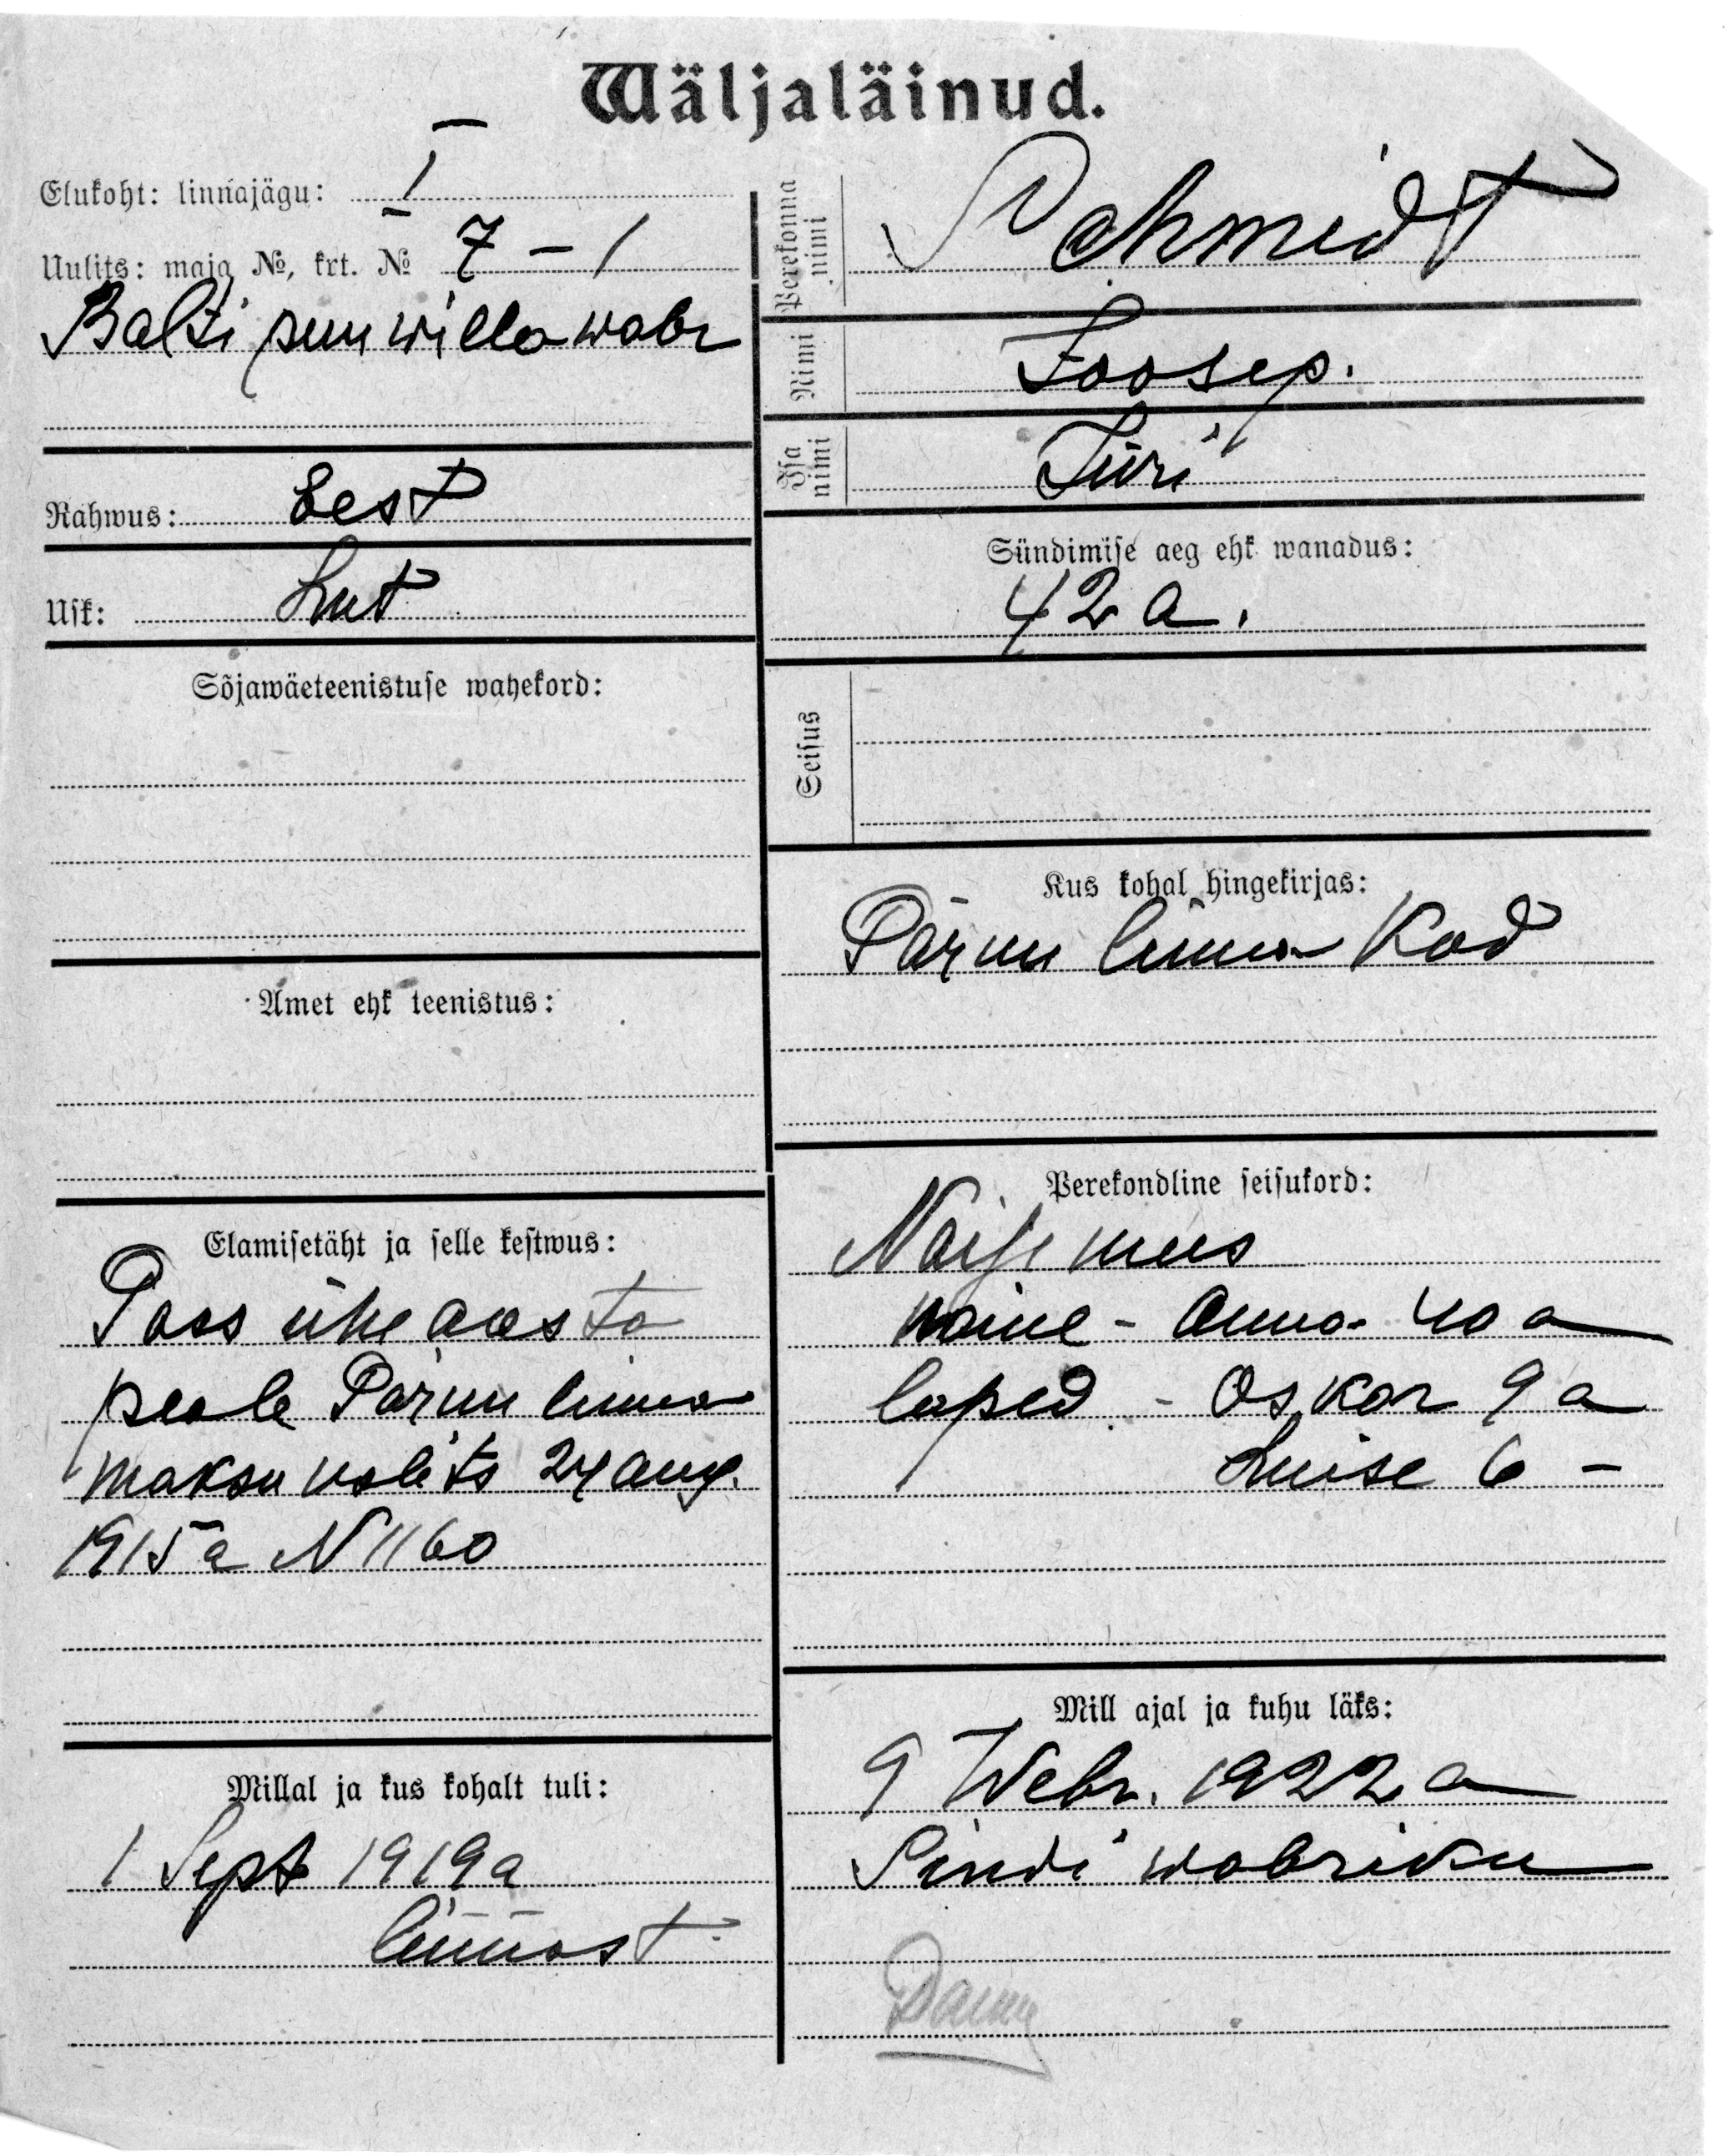 Wäljaläinud.
Elukoht: linnajagu: I
Uulits: maja №, krt. № 7 - 1
Balti puuwilla wabr
Rahwus: eest
Usk: Lut
Sõjawäeteenistuse wahekord:
Amet ehk teenistus:
Elamisetäht ja selle kestwus:
Pass ühe aasta
peale Pärnu linna
maksu valits 24 aug.
1915 a N 1160
Millal ja kus kohalt tuli:
1 Sept 1919 a
linnast
Perekonna nimi Schmidt
Nimi Joosep.
Isa nimi Jüri
Sündimise aeg ehk wanadus:
42 a.
Seisus
Kus kohal hingekirjas:
Pärnu linna Kod
Perekondline seisukord:
Naise mees
naine - Anna 40 a
lapsed - Oskar 9 a
Luise 6 -
Mill ajal ja kuhu läks:
9 Webr. 1922 a
Sindi wabriku